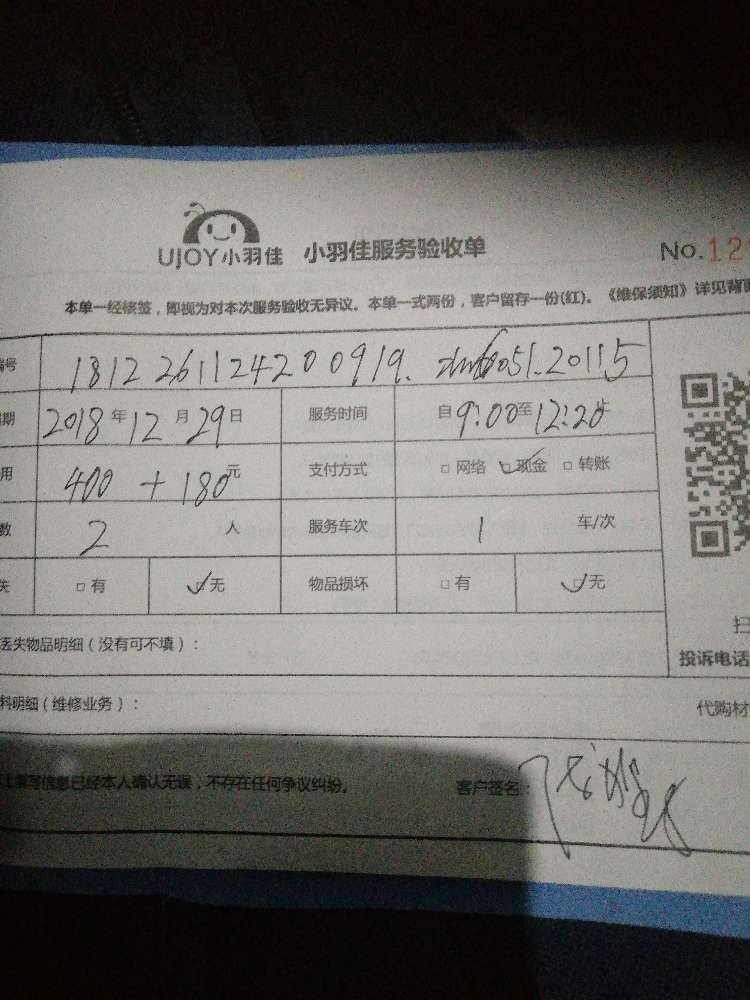 UJOY小羽佳 小羽佳服务验收单 No.12
本单一经核签，即视为对本次服务验收无异议。本单一式两份，客户留存一份(红)。《维保须知》详见背面
编号 181226112420 0919. 051.20115
期 2018年12月29日 服务时间 自9:00至12:20止
用 400 + 180元 支付方式 □网络 ☑现金 □转账
数 2 人 服务车次 1 车/次
失 □有 ☑无 物品损坏 □有 ☑无
丢失物品明细（没有可不填）： 扫
投诉电话
料明细（维修业务）： 代购材
上填写信息已经本人确认无误，不存在任何争议纠纷。 客户签名：